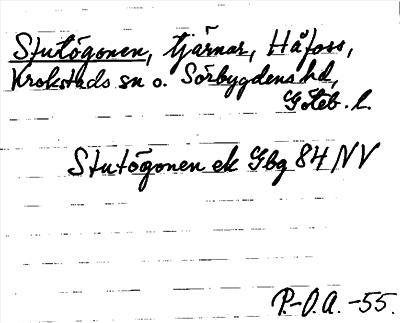 Stutögonen, tjärnar, Håfoss,
Krokstads sn o. Sörbygdens hd,
Göteb. l.
Stutögonen ek Gbg 84 NV
P.-O.A. -55.